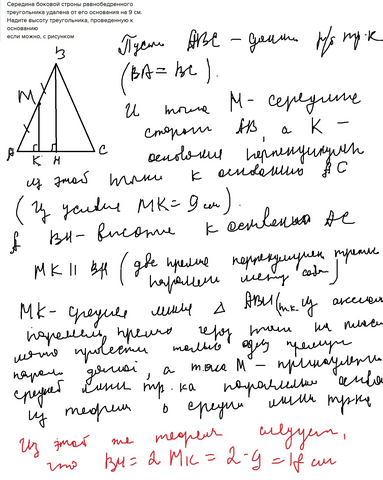 Середина боковой строны равнобедренного
треугольника удалена от его основания на 9 см.
Надите высоту треугольника, проведенную к
основанию
если можно, с рисунком
B
M
A K H C
Пусть ABC – данный р/б тр-к
(BA = BC).
И точка M – середина
стороны AB, а K –
основание перпендикуляра
из этой точки к основанию AC
(Из условия MK = 9 см).
А BH – высота к основанию AC
MK || BH (две прямые перпендикулярн третьей
параллел между собой)
MK – средняя линия △ ABH (т.к. из аксиом
паралел, прямо через точку на плоск
можно провести только одну прямую
парал данной, а точка M – принадлежит
средней линии тр-ка параллельно основ
из теорем о средн линии тр-ка
Из этой же теорем следует,
что BH = 2 MK = 2·9 = 18 см